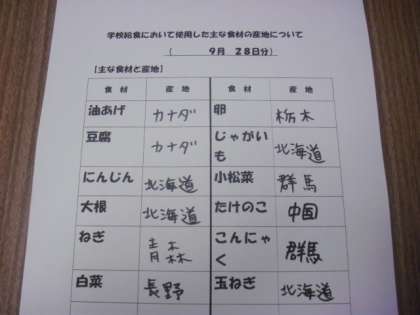 学校給食において使用した主な食材の産地について
（　９月　２８日分）
［主な食材と産地］
食材 産地 食材 産地
油あげ カナダ 卵 栃木
豆腐 カナダ じゃがいも 北海道
にんじん 北海道 小松菜 群馬
大根 北海道 たけのこ 中国
ねぎ 青森 こんにゃく 群馬
白菜 長野 玉ねぎ 北海道